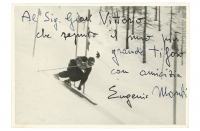 Al Sig. Gian Vittorio
che reputo il mio più
grande tifoso
con amicizia
Eugenio Monti